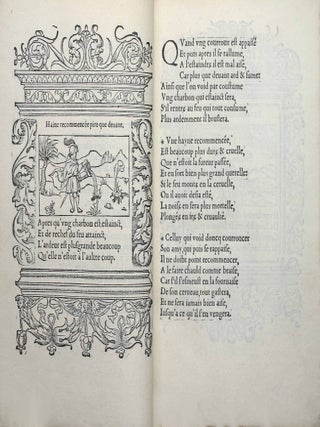 Haine recommencée pire que deuant.
Apres qu'vng charbon est estainct,
Et de rechef du feu attainct,
L'ardeur est plusgrande beaucoup
Qu'elle n'estoit à l'aultre coup.
QVand vng courroux est appaisé
Et puis apres il se rallume,
A l'estaindre il est mal aisé,
Car plus que deuant ard & fume:
Ainsi que l'on void par coustume
Vng charbon qui est estainct sera,
S'il r'entre au feu qui tout consume,
Plus ardemment il bruslera.
Vne hayne recommencée,
Est beaucoup plus dure & cruelle,
Que n'estoit la fureur passée,
Et en sort bien plus grand querelle:
Si le feu monte en la ceruelle,
Ou il auoit desia esté,
La noise en sera plus mortelle,
Plongée en ire & cruaulté.
Celluy qui void doncq courroucer
Son amy, qui puis se rappaise,
Il ne doibt point recommencer,
A le faire chauld comme braise,
Car s'il s'esmeust en la fournaise
De son cerueau, tout gastera,
Et ne sera iamais bien aise,
Iusqu'a ce qu'il s'en vengera.